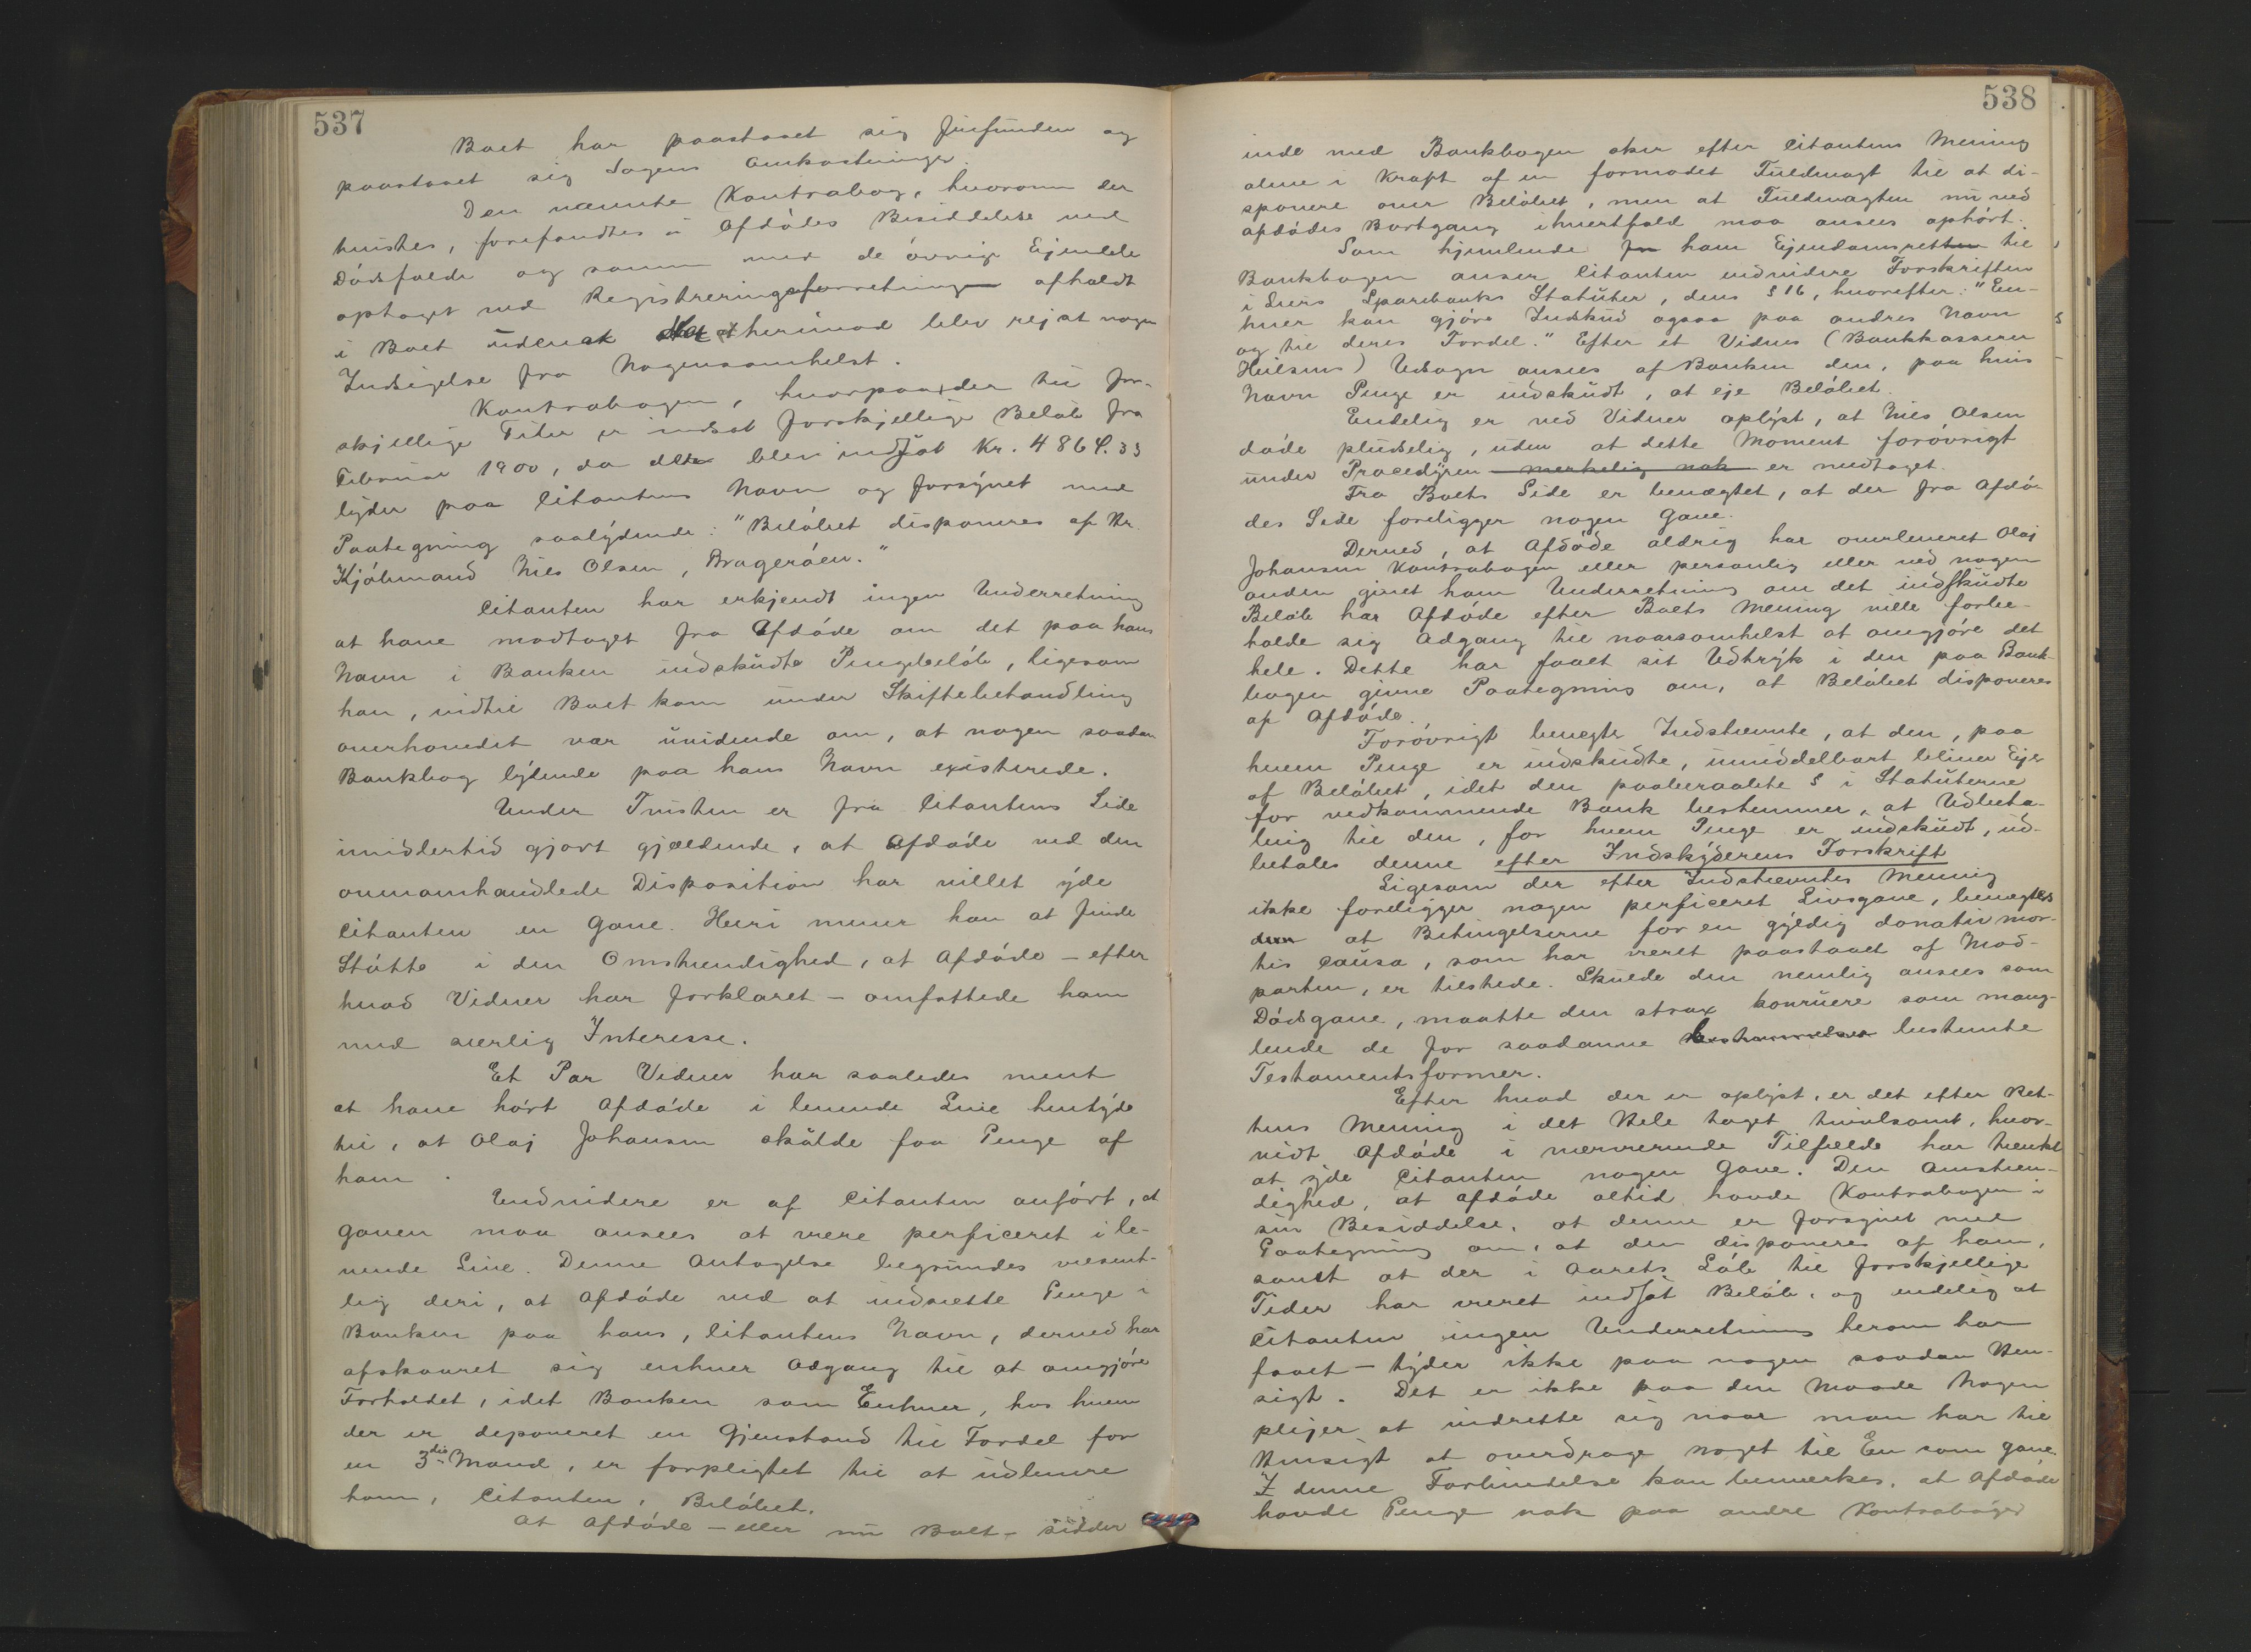 537
Boet har paastaaet sig frifunden og
paastaaet sig Sagens Omkostninger.
Den nævnte Kontrabog, hvorom der
tvistes, forefandtes i Afdødes Besiddelse ved
Dødsfaldet og sammen med de øvrige Ejendele
optaget ved Registreringsforretningen afholdt
i Boet uden at der herimod blev rejst nogen
Indsigelse fra Nogensomhelst.
Kontrabogen, hvorpaa der til for-
skjellige Tider er indsat forskjellige Beløb fra
Februar 1900, da der blev indsat Kr. 4864.33
lyder paa Citantens Navn og forsynet med
Paategning saalydende: "Beløbet disponeres af Hr.
Kjøbmand Nils Olsen, Bragerøen."
Citanten har erkjendt ingen Underretning
at have modtaget fra Afdøde om det paa hans
Navn i Banken indskudte Pengebeløb, ligesom
han, indtil Boet kom under Skiftebehandling
overhovedet var uvidende om, at nogen saadan
Bankbog lydende paa hans Navn existerede.
Under Tvisten er fra Citantens Side
imidlertid gjort gjældende, at Afdøde ved den
ommeromhandlede Disposition har villet yde
Citanten en Gave. Heri mener han at finde
Støtte i den Omstændighed, at Afdøde – efter
hvad Vidner har forklaret – omfattede ham
med særlig Interesse.
Et Par Vidner har saaledes ment
at have hørt Afdøde i levende Live hentyde
til, at Olaj Johansen skulde faa Penge af
ham.
Endvidere er af Citanten anført, at
Gaven maa ansees at være perficeret i le-
vende Live. Denne Antagelse begrundes væsent-
lig deri, at Afdøde ved at indsætte Penge i
Banken paa hans, Citantens Navn, derved har
afskaaret sig enhver Adgang til at omgjøre
Forholdet, idet Banken som Enhver, hos hvem
der er deponeret en Gjenstand til Fordel for
en 3die Mand, er forpligtet til at udlevere
ham, Citanten, Beløbet.
At Afdøde – eller nu Boet – sidder
538
inde med Bankbogen sker efter Citantens Mening
alene i Kraft af en formodet Fuldmagt til at di-
sponere over Beløbet, men at Fuldmagten nu ved
Afdødes Bortgang ihvertfald maa ansees ophørt.
Som hjemlende ham Ejendomsretten til
Bankbogen anser Citanten endvidere Forskriften
i Liers Sparebanks Statuter, dens § 16, hvorefter: "En-
hver kan gjøre Indskud ogsaa paa andres Navn
og til deres Fordel." Efter et Vidnes (Bankkasserer
Heilsens) Udsagn ansees af Banken den, paa hvis
Navn Penge er indskudt, at eje Beløbet.
Endelig er ved Vidner oplyst, at Nils Olsen
døde pludselig, uden at dette Moment forøvrigt
under Proceduren merkelig nok er medtaget.
Fra Boets Side er benægtet, at der fra Afdø-
des Side foreligger nogen Gave.
Derved, at Afdøde aldrig har overleveret Olaj
Johansen Kontrabogen eller personlig eller ved nogen
anden givet ham Underretning om det indskudte
Beløb har Afdøde efter Boets Mening ville forbe-
holde sig Adgang til naarsomhelst at omgjøre det
hele. Dette har faaet sit Udtryk i den paa Bank-
bogen givne Paategning om, at Beløbet disponeres
af Afdøde.
Forøvrigt benegter Indstevnte, at den, paa
hvem Penge er indskudte, umiddelbart bliver Ejer
af Beløbet, idet den paaberaabte § i Statuterne
for vedkommende Bank bestemmer, at Udbeta-
ling til den, for hvem Penge er indskudt, ud-
betales denne efter Indskyderens Forskrift
Ligesom der efter Indstevntes Mening
ikke foreligger nogen perficeret Livsgave, benegtes
at Betingelserne for en gyldig donatio mor-
tis causa, som har været paastaaet af Mod-
parten, er tilstede. Skulde den nemlig ansees som
Dødsgave, maatte den strax konruere som mang-
lende de for saadanne bestemmelser bestemte
Testamentsformer.
Efter hvad der er oplyst, er det efter Ret-
tens Mening i det Hele taget tvivlsomt, hvor-
vidt Afdøde i nærværende Tilfælde har tænkt
at yde Citanten nogen Gave. Den Omstæn-
dighed, at Afdøde altid havde Kontrabogen i
sin Besiddelse, at denne er forsynet med
Paategning om, at den disponeres af ham,
samt at der i Aarets Løb til forskjellige
Tider har været indsat Beløb, og endelig at
Citanten ingen Underretning herom har
faaet – tyder ikke paa nogen saadan Hen-
sigt. Det er ikke paa den Maade Nogen
plejer at indrette sig naar man har til
Hensigt at overdrage noget til En som Gave.
I denne Forbindelse kan bemerkes, at Afdøde
havde Penge nok paa andre Kontrabøger